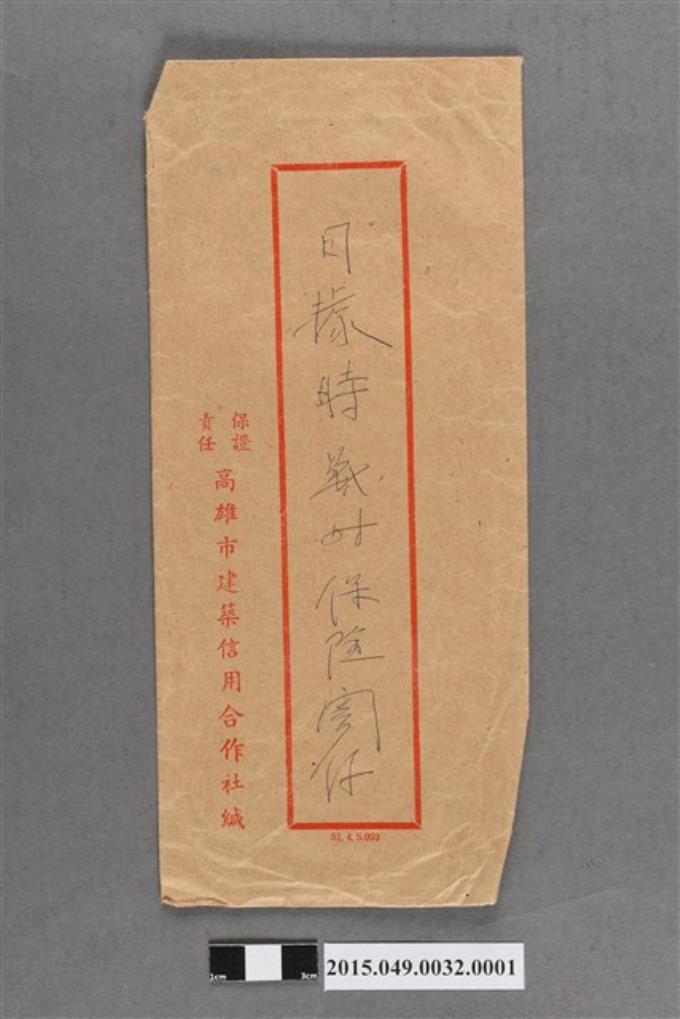 日據時戰时保險寄存
保證
責任
高雄市建築信用合作社緘
51. 4. 5.000
1cm
3cm
2015.049.0032.0001